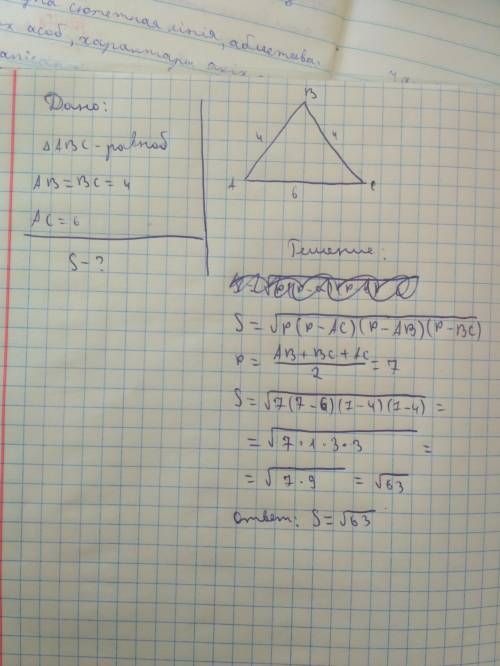 сюжетная лінія, абмежава.
х асоб, характары якіх
Дано:
△ABC - равноб
AB = BC = 4
AC = 6
S - ?
B
4
4
A
C
6
Решение:
S = √p(p - AC)(p - AB)(p - BC)
p = AB + BC + AC / 2 = 7
S = √7(7-6)(7-4)(7-4) =
= √7·1·3·3 =
= √7·9 = √63
ответ: S = √63